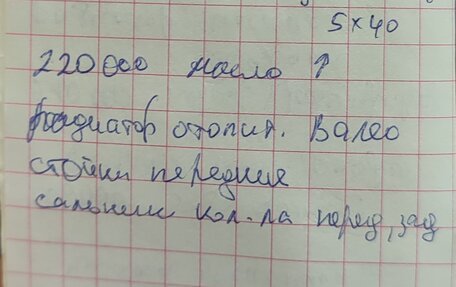 5x40
220000 масло ↑
радиатор отопит. Валео
стойки передние
сальники кол-ла перед, зад